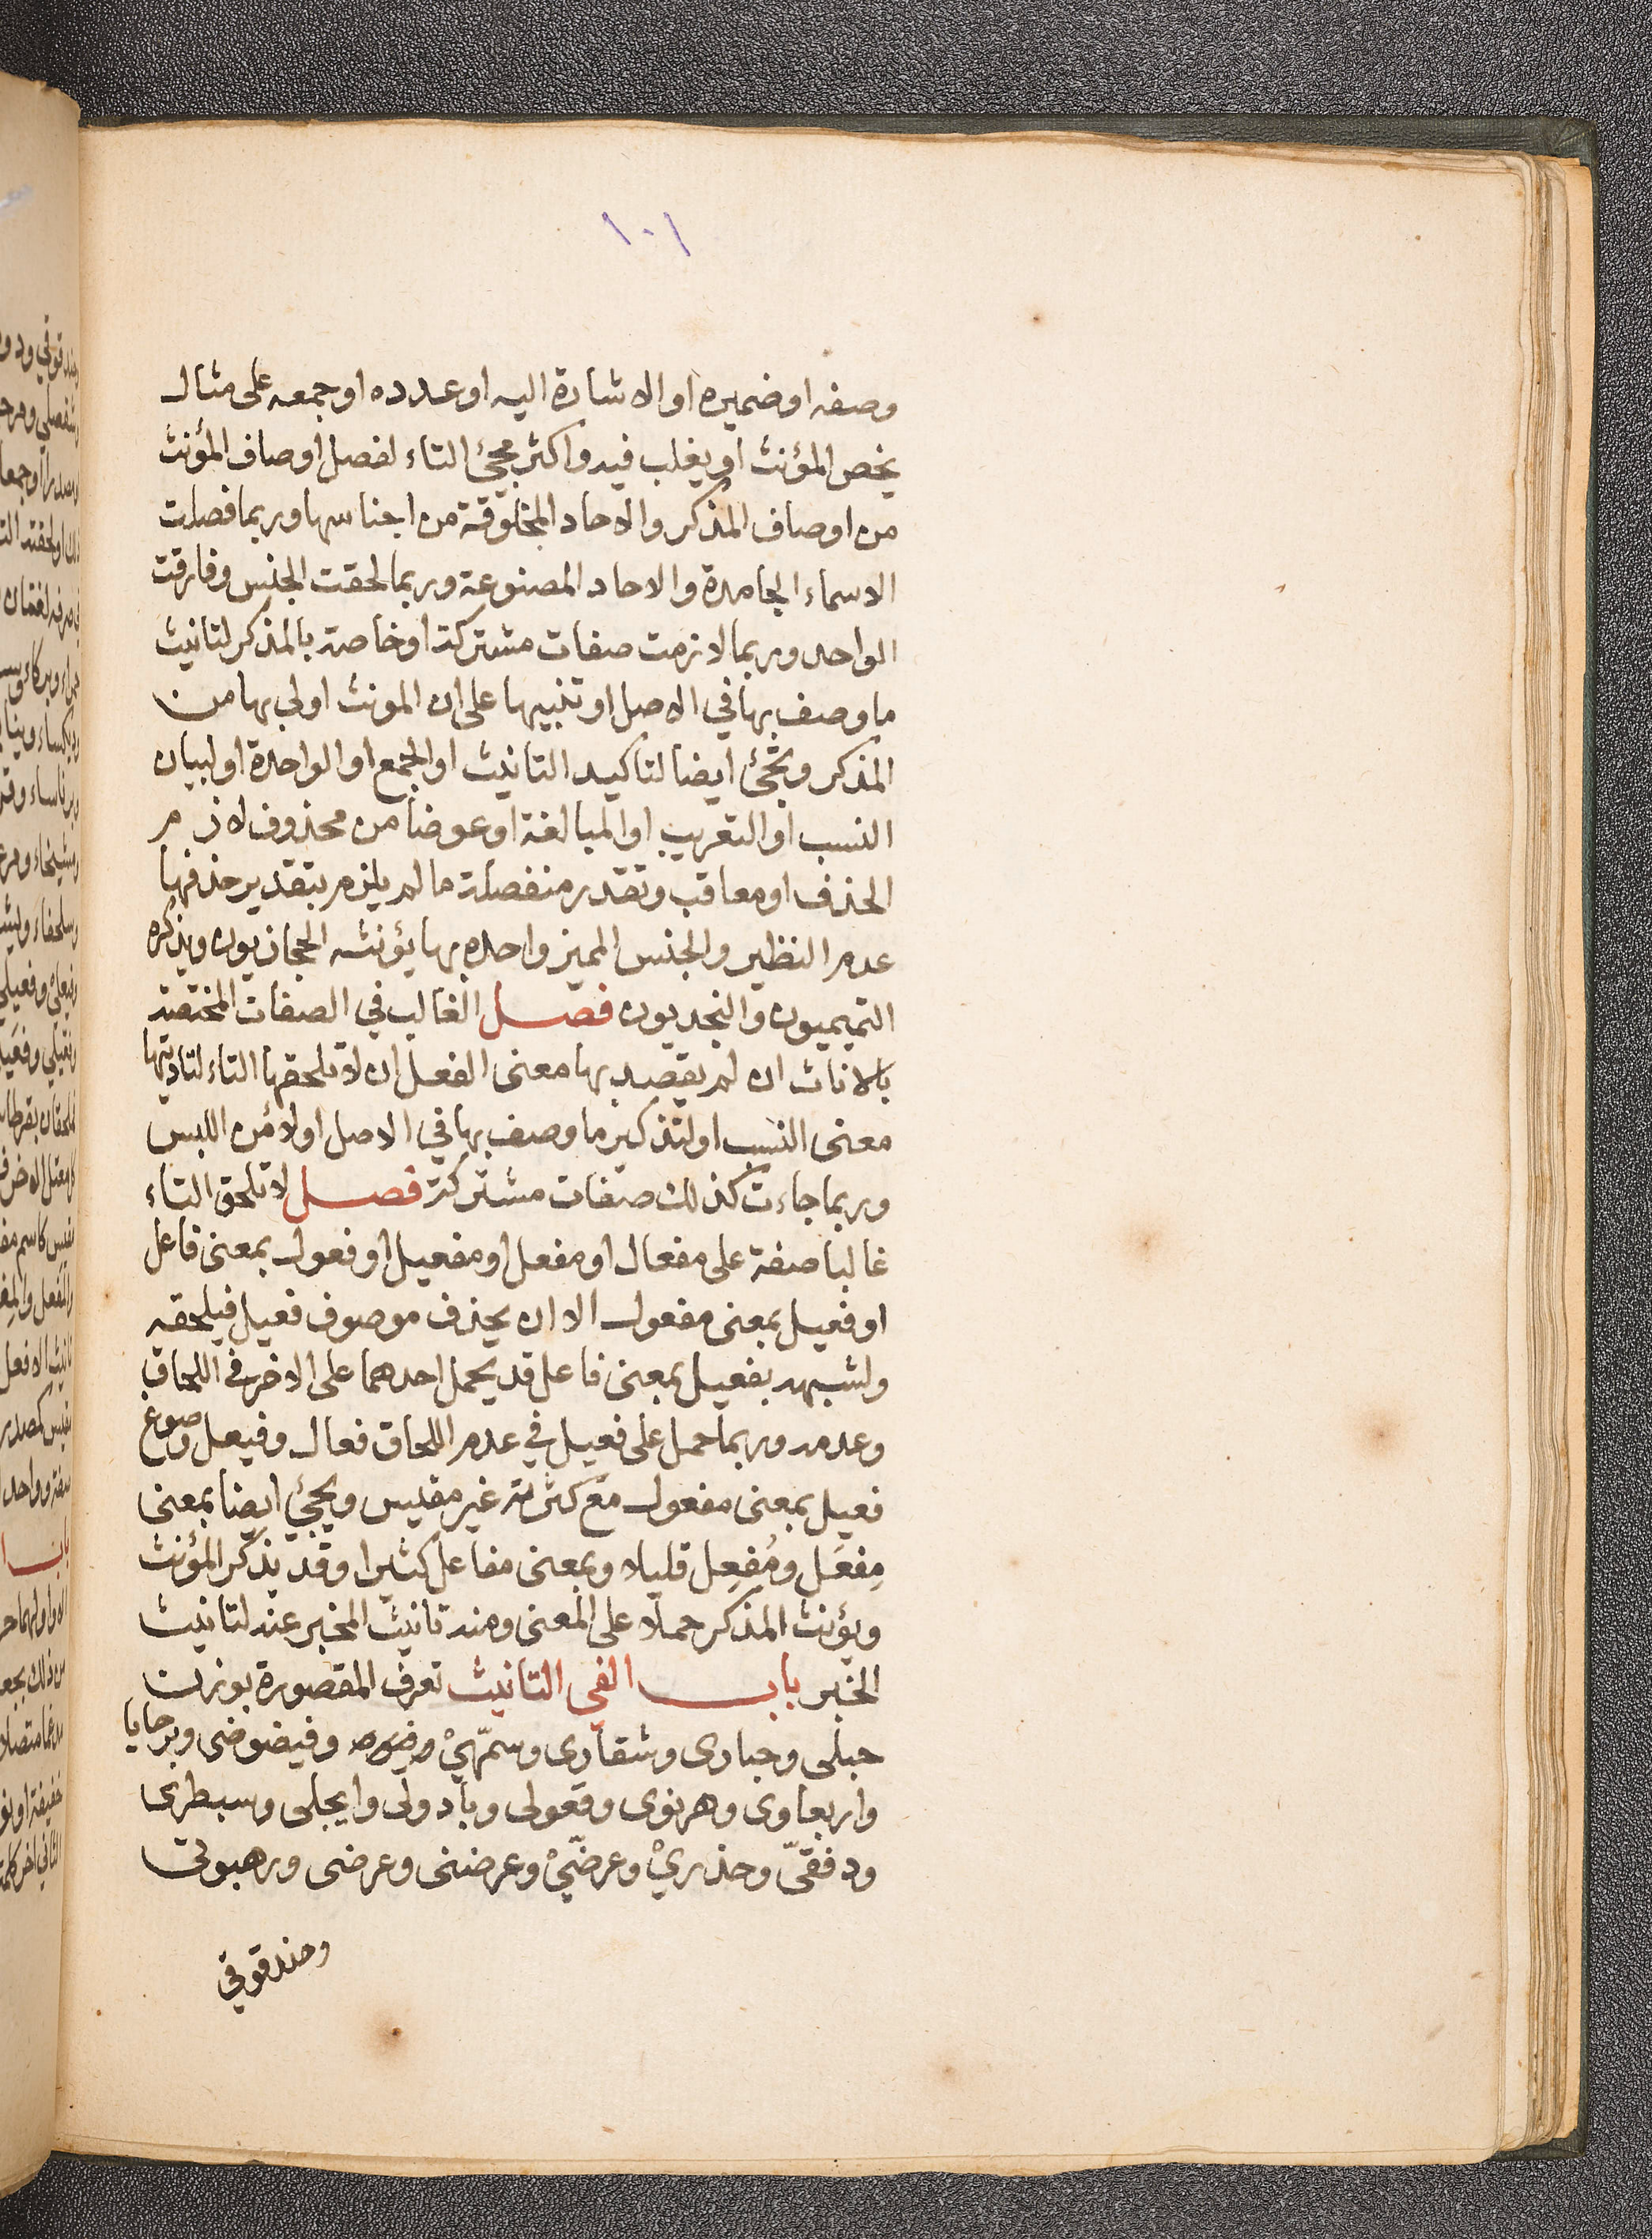 ١٠١
وصفه او ضميره او الاشارة اليه او عدده او جمعه على مثال
يخص المؤنث او يغلب فيه واكثر مجئ التاء لفصل اوصاف المؤنث
من اوصاف المذكر والاحاد المخلوقة من اجناسها وربما فصلت
الاسماء الجامدة والاحاد المصنوعة وربما لحقت الجنس وفارقت
الواحد وربما لازمت صفات مشتركة او خاصة بالمذكر لتانيث
ما وصف بها في الاصل او تنبيها على ان المونث اولى بها من
المذكر وتجئ ايضا لتاكيد التانيث او الجمع او الواحدة او لبيان
النسب او التعريب او المبالغة او عوضا من محذوف لازم
الحذف او معاقب وتقدر منفصلة ما لم يلزم بتقدير حذفها
عدم النظير والجنس المميز واحده بها يؤنثه الحجازيون ويذكره
التميميون والنجديون فصل الغالب في الصفات المختصة
بالاناث ان لم يقصد بها معنى الفعل ان لا تلحقها التاء لتاديتها
معنى النسب او لتذكير ما وصف بها في الاصل او لامن اللبس
وربما جاءت كذلك صفات مشتركة فصل لا تلحق التاء
غالبا صفة على مفعال او مفعل او مفعيل او فعول بمعنى فاعل
او فعيل بمعنى مفعول الا ان يحذف موصوف فعيل فيلحقه
ولشبهه بفعيل بمعنى فاعل قد يحمل احدهما على الاخر في اللحاق
وعدمه وربما حمل على فعيل في عدم اللحاق فعال وفيعل وصوغ
فعيل بمعنى مفعول مع كثرته غير مقيس ويجئ ايضا بمعنى
مِفعَل ومُفعِل قليلا وبمعنى مفاعل كثيرا وقد يذكر المؤنث
ويؤنث المذكر حملا على المعنى ومنه تانيث المخبر عنه لتانيث
الخبر باب الفي التانيث تعرف المقصورة بوزن
حبلى وحبارى وشقارى وسمّهىْ وفيضوضى وبرحايا
واربعاوى وهرنوى وقعولى وبادولى وايجلى وسبطرى
ودفقىّ وحذرىْ وعرضّىْ وعرضنى وعرضى ورهبوتى
وحندقوقى